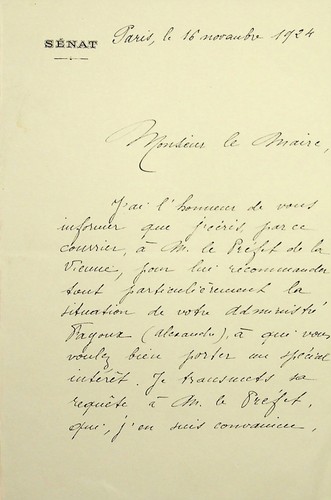 SÉNAT
Paris, le 16 novembre 1924
Monsieur le Maire,
J'ai l'honneur de vous
informer que j'écris, par ce
courrier, à M. le Préfet de la
Vienne, pour lui recommander
tout particulièrement la
situation de votre administré
Fayoux (alexandre), à qui vous
voulez bien porter un spécial
intérêt. Je transmets sa
requête à M. le Préfet,
qui, j'en suis convaincu,